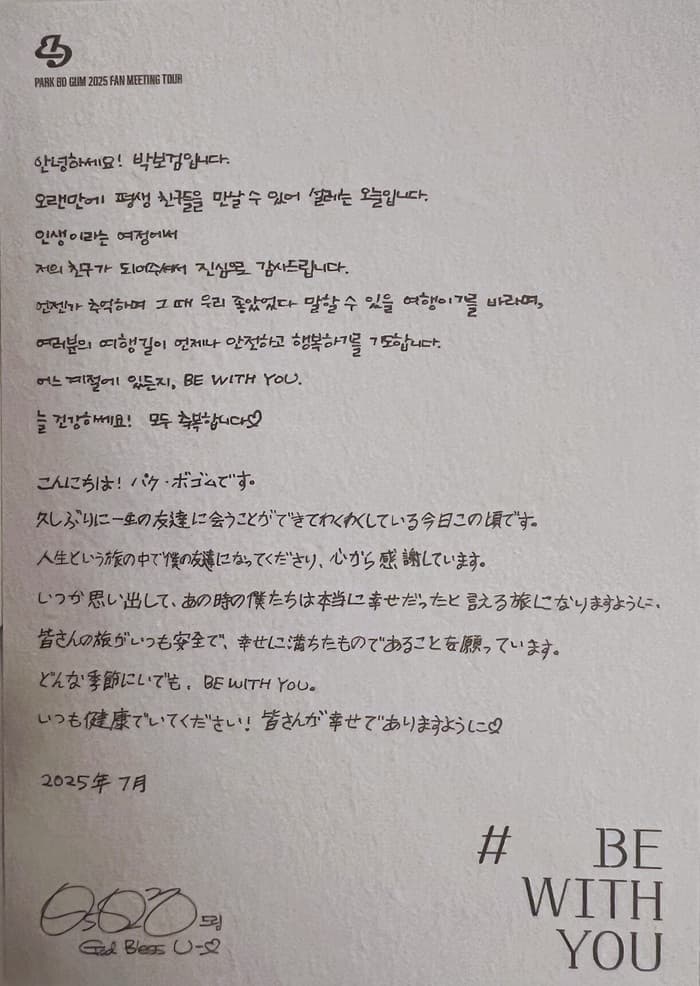 PARK BO GUM 2025 FAN MEETING TOUR
안녕하세요! 박보검입니다.
오랜만에 평생 친구들을 만날 수 있어 설레는 오늘입니다.
인생이라는 여정에서
저의 친구가 되어주셔서 진심으로 감사드립니다.
언젠가 추억하며 그 때 우리 좋았었다 말할 수 있을 여행이기를 바라며,
여러분의 여행길이 언제나 안전하고 행복하기를 기도합니다.
어느 계절에 있든지, BE WITH YOU.
늘 건강하세요! 모두 축복합니다♡
こんにちは! パク・ボゴムです。
久しぶりに一生の友達に会うことができてわくわくしている今日この頃です。
人生という旅の中で僕の友達になってくださり、心から感謝しています。
いつか思い出して、あの時の僕たちは本当に幸せだったと言える旅になりますように、
皆さんの旅がいつも安全で、幸せに満ちたものであることを願っています。
どんな季節にいても、BE WITH YOU。
いつも健康でいてください! 皆さんが幸せでありますように♡
2025年 7月
드림
God Bless U-♡
# BE
WITH
YOU